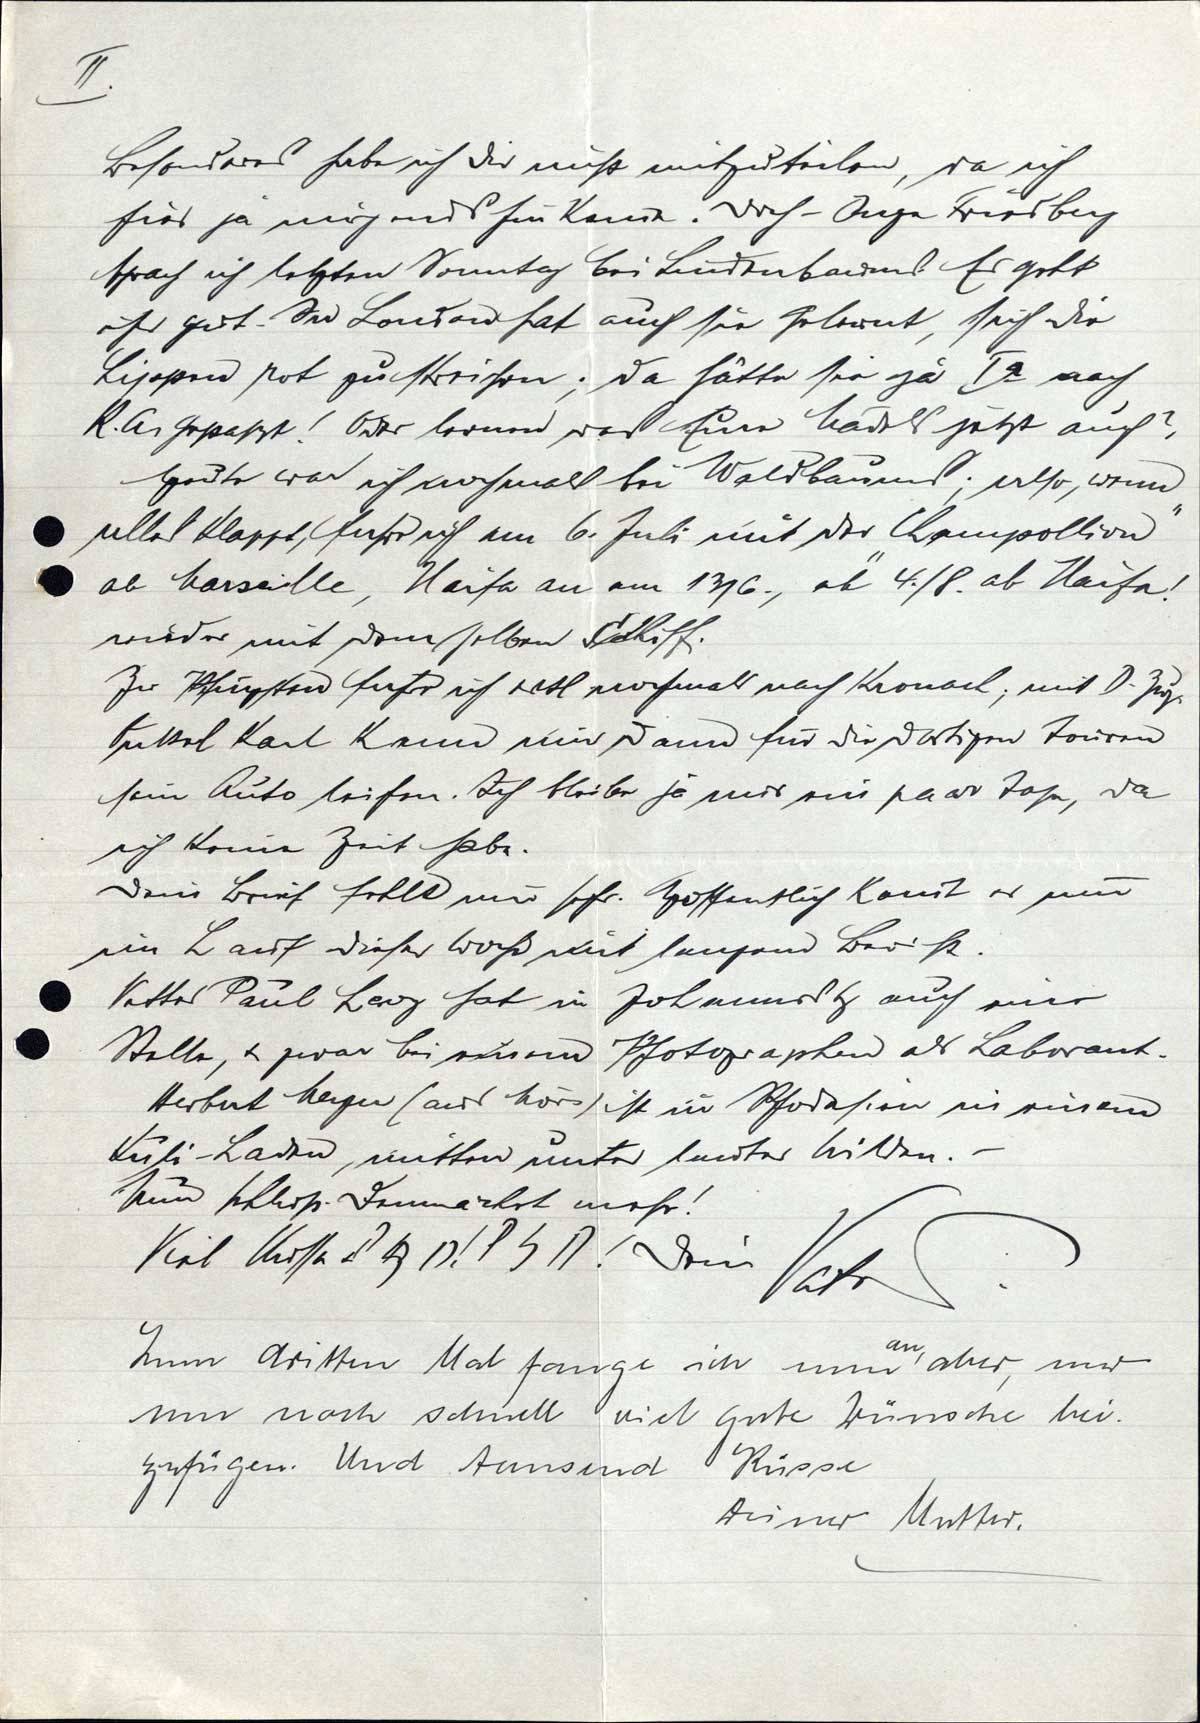 II.
Besonderes habe ich Dir nicht mitzuteilen, da ich
hier ja nirgends hinkomme. Doch – Inge Friedberg
sprach ich letzten Sonntag bei Lindenbaums. Es geht
ihr gut. In London hat auch sie gelernt, sich die
Lippen rot zu streichen; da hätte sie ja Ia nach
R. A. gepaßt! Oder lernen das Eure Mädels jetzt auch?
Heute war ich nochmals bei Waldbaums; also, wenn
alles klappt, fahre ich am 6. Juli mit der „Champollion"
ab Marseille, Haifa an am 13/6., ab 4./8. ab Haifa!
wieder mit demselben Schiff.
Zu Pfingsten fahre ich evtl nochmals nach Kronach; mit D-Zug.
Onkel Karl kann mir dann für die dortigen Touren
sein Auto leihen. Ich bleibe ja nur ein paar Tage, da
ich keine Zeit habe.
Dein Brief fehlt uns sehr. Hoffentlich kommt er nun
im Lauf dieser Woche mit langem Bericht.
Vetter Paul Levy hat in Johannesbg auch eine
Stelle, & zwar bei einem Photographen als Laborant.
Herbert Meyer (aus Mörs) ist in Rhodesien in einem
Kuli-Laden, mitten unter lauter Wilden. –
Nun Schluß. Demnächst mehr!
Viel Küsse Dein Vater
Zum dritten Mal fange ich nun an, aber, nur
um noch schnell viel gute Wünsche bei-
zufügen. Und tausend Küsse
Deiner Mutter.